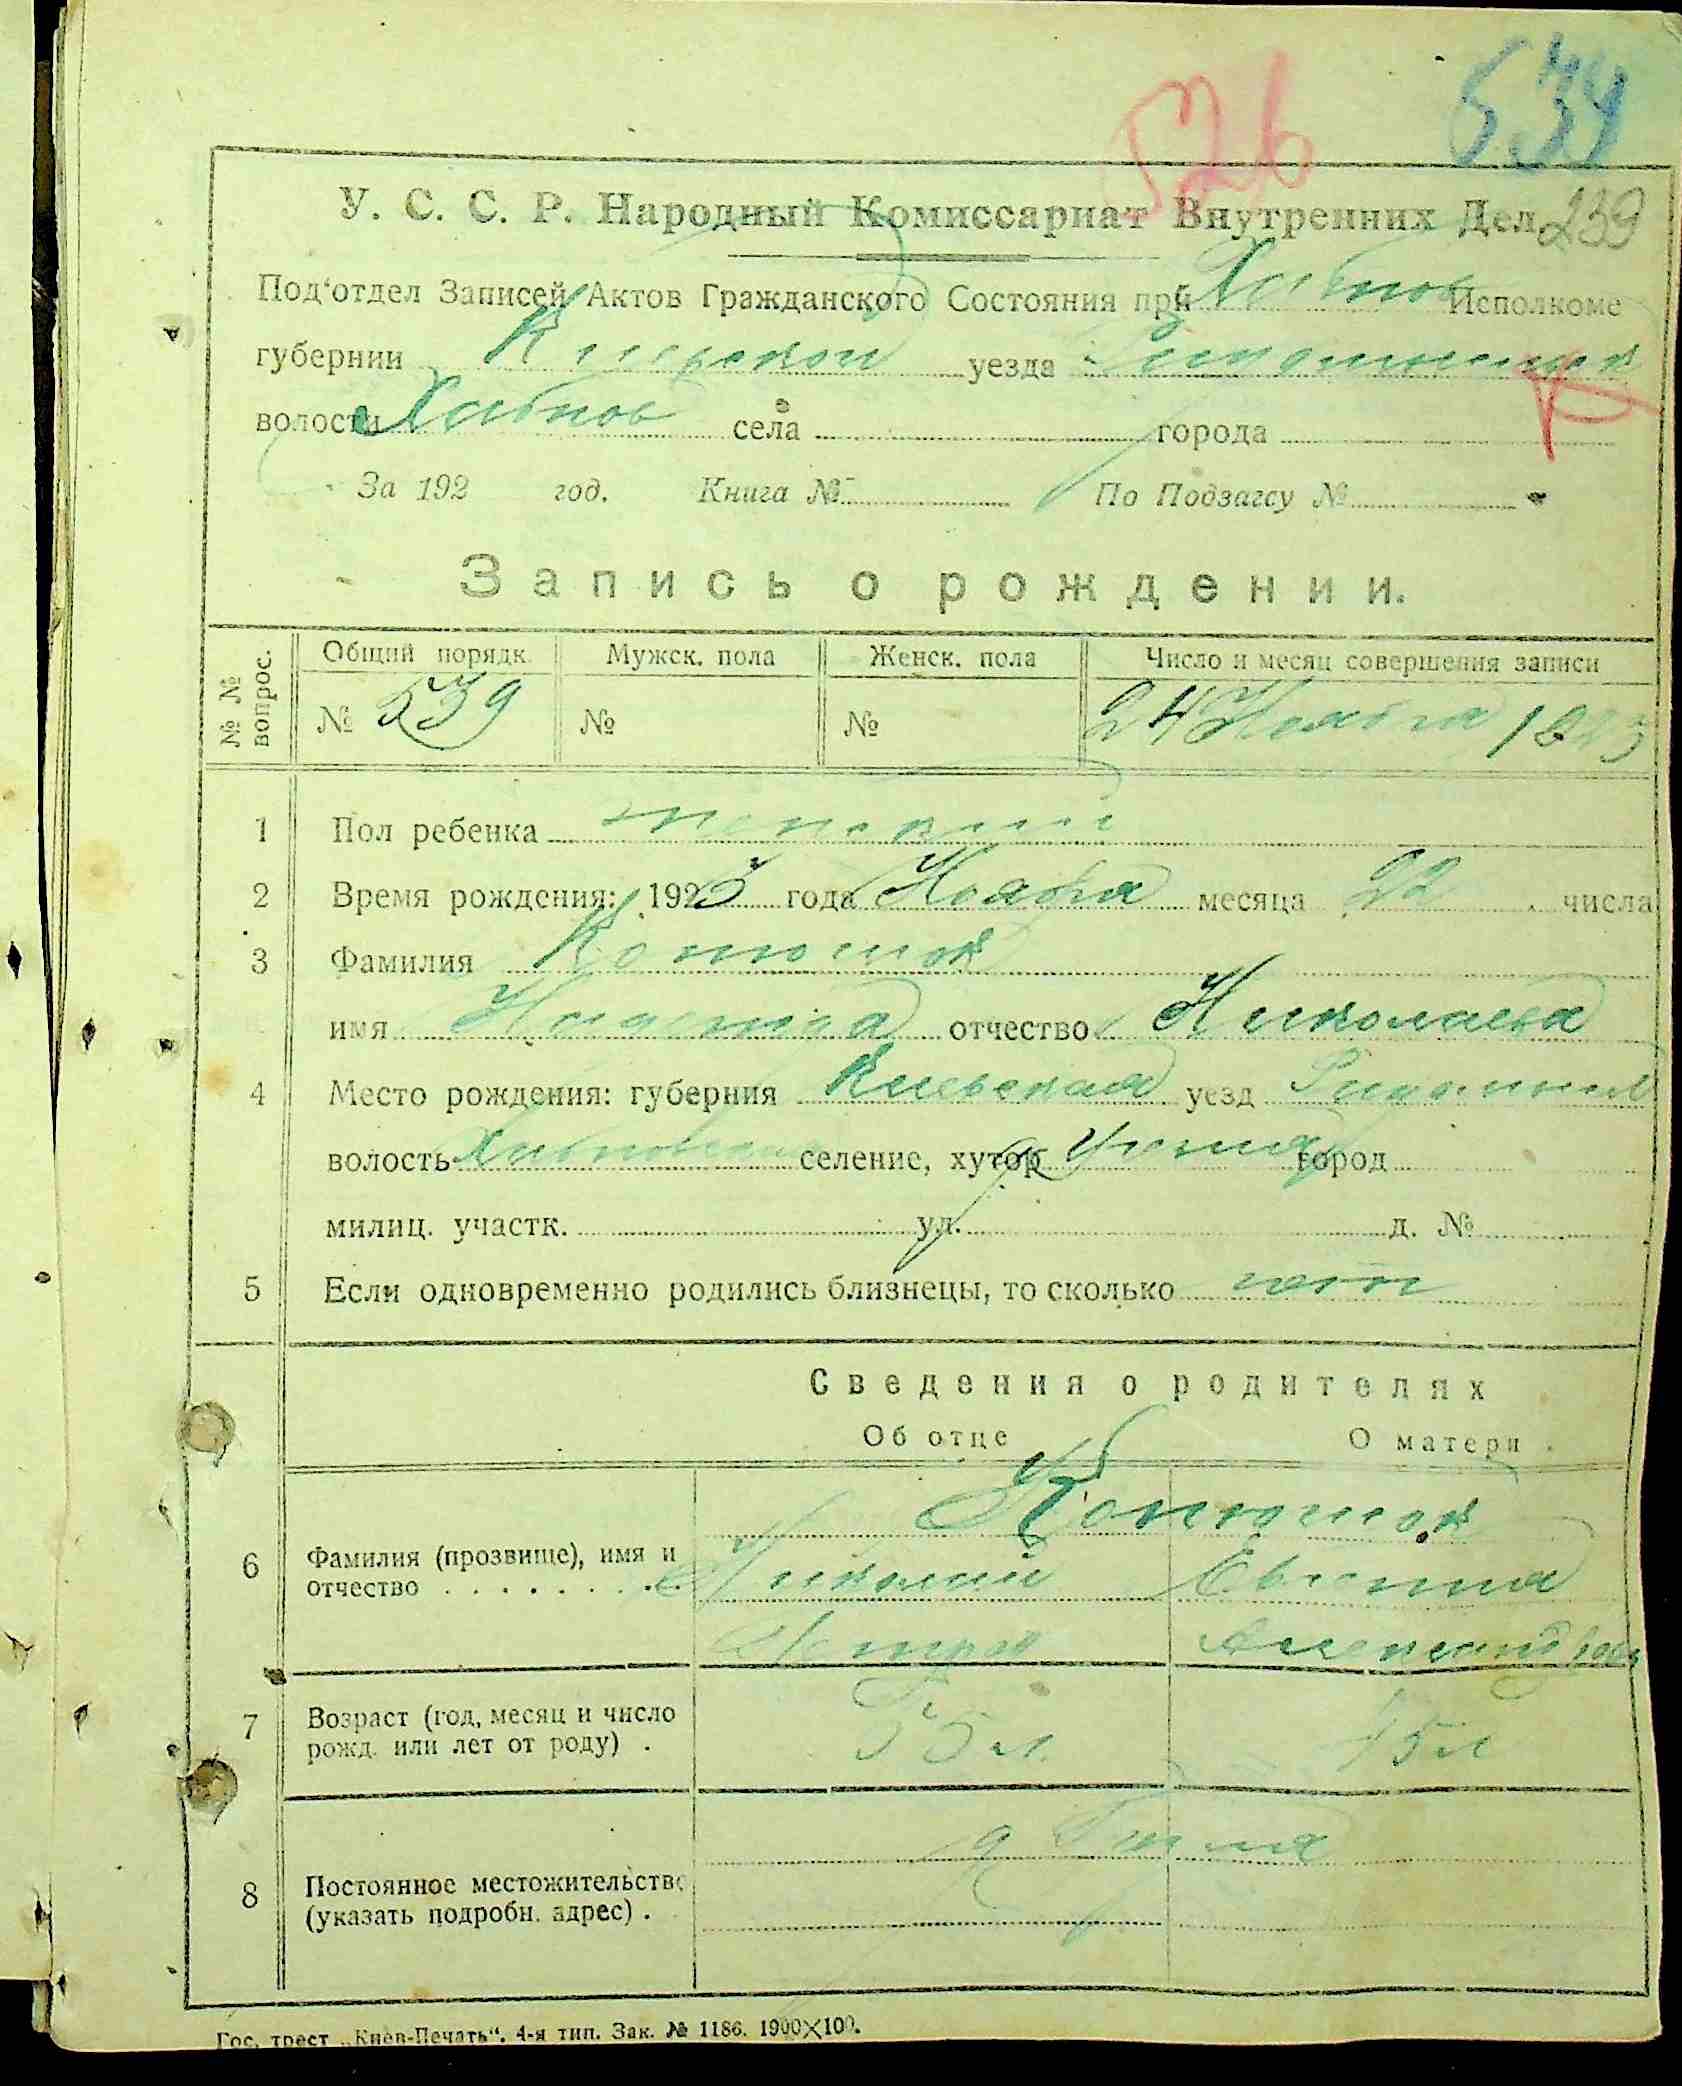 526
534
У. С. С. Р. Народный Комиссариат Внутренних Дел 239
Под'отдел Записей Актов Гражданского Состояния при Хабнов Исполкоме
губернии Киевской уезда
волости Хабнов села города
За 192 год. Книга № По Подзагсу №
Запись о рождении.
№ № вопрос.
Общий порядк. Мужск. пола Женск. пола Число и месяц совершения записи
№ 539 № № 24 Ноября 1923
1 Пол ребенка женский
2 Время рождения: 1923 года Ноября месяца 22 числа
3 Фамилия Конюшок
имя отчество Николаева
4 Место рождения: губерния Киевская уезд
волость Хабновская селение, хутор город
милиц. участк. ул. д. №
5 Если одновременно родились близнецы, то сколько нет
Сведения о родителях
Об отце О матери
Конюшок
6 Фамилия (прозвище), имя и отчество Николай
Петров Александрова
7 Возраст (год, месяц и число рожд. или лет от роду)
8 Постоянное местожительство (указать подробн. адрес)
Гос. трест „Киев-Печать“. 4-я тип. Зак. № 1186. 1900×100.